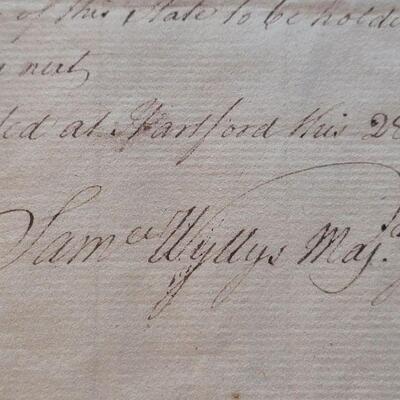 of this State to be holde
next
ted at Hartford this 28
Sam<sup>ll</sup> Wyllys Maj.